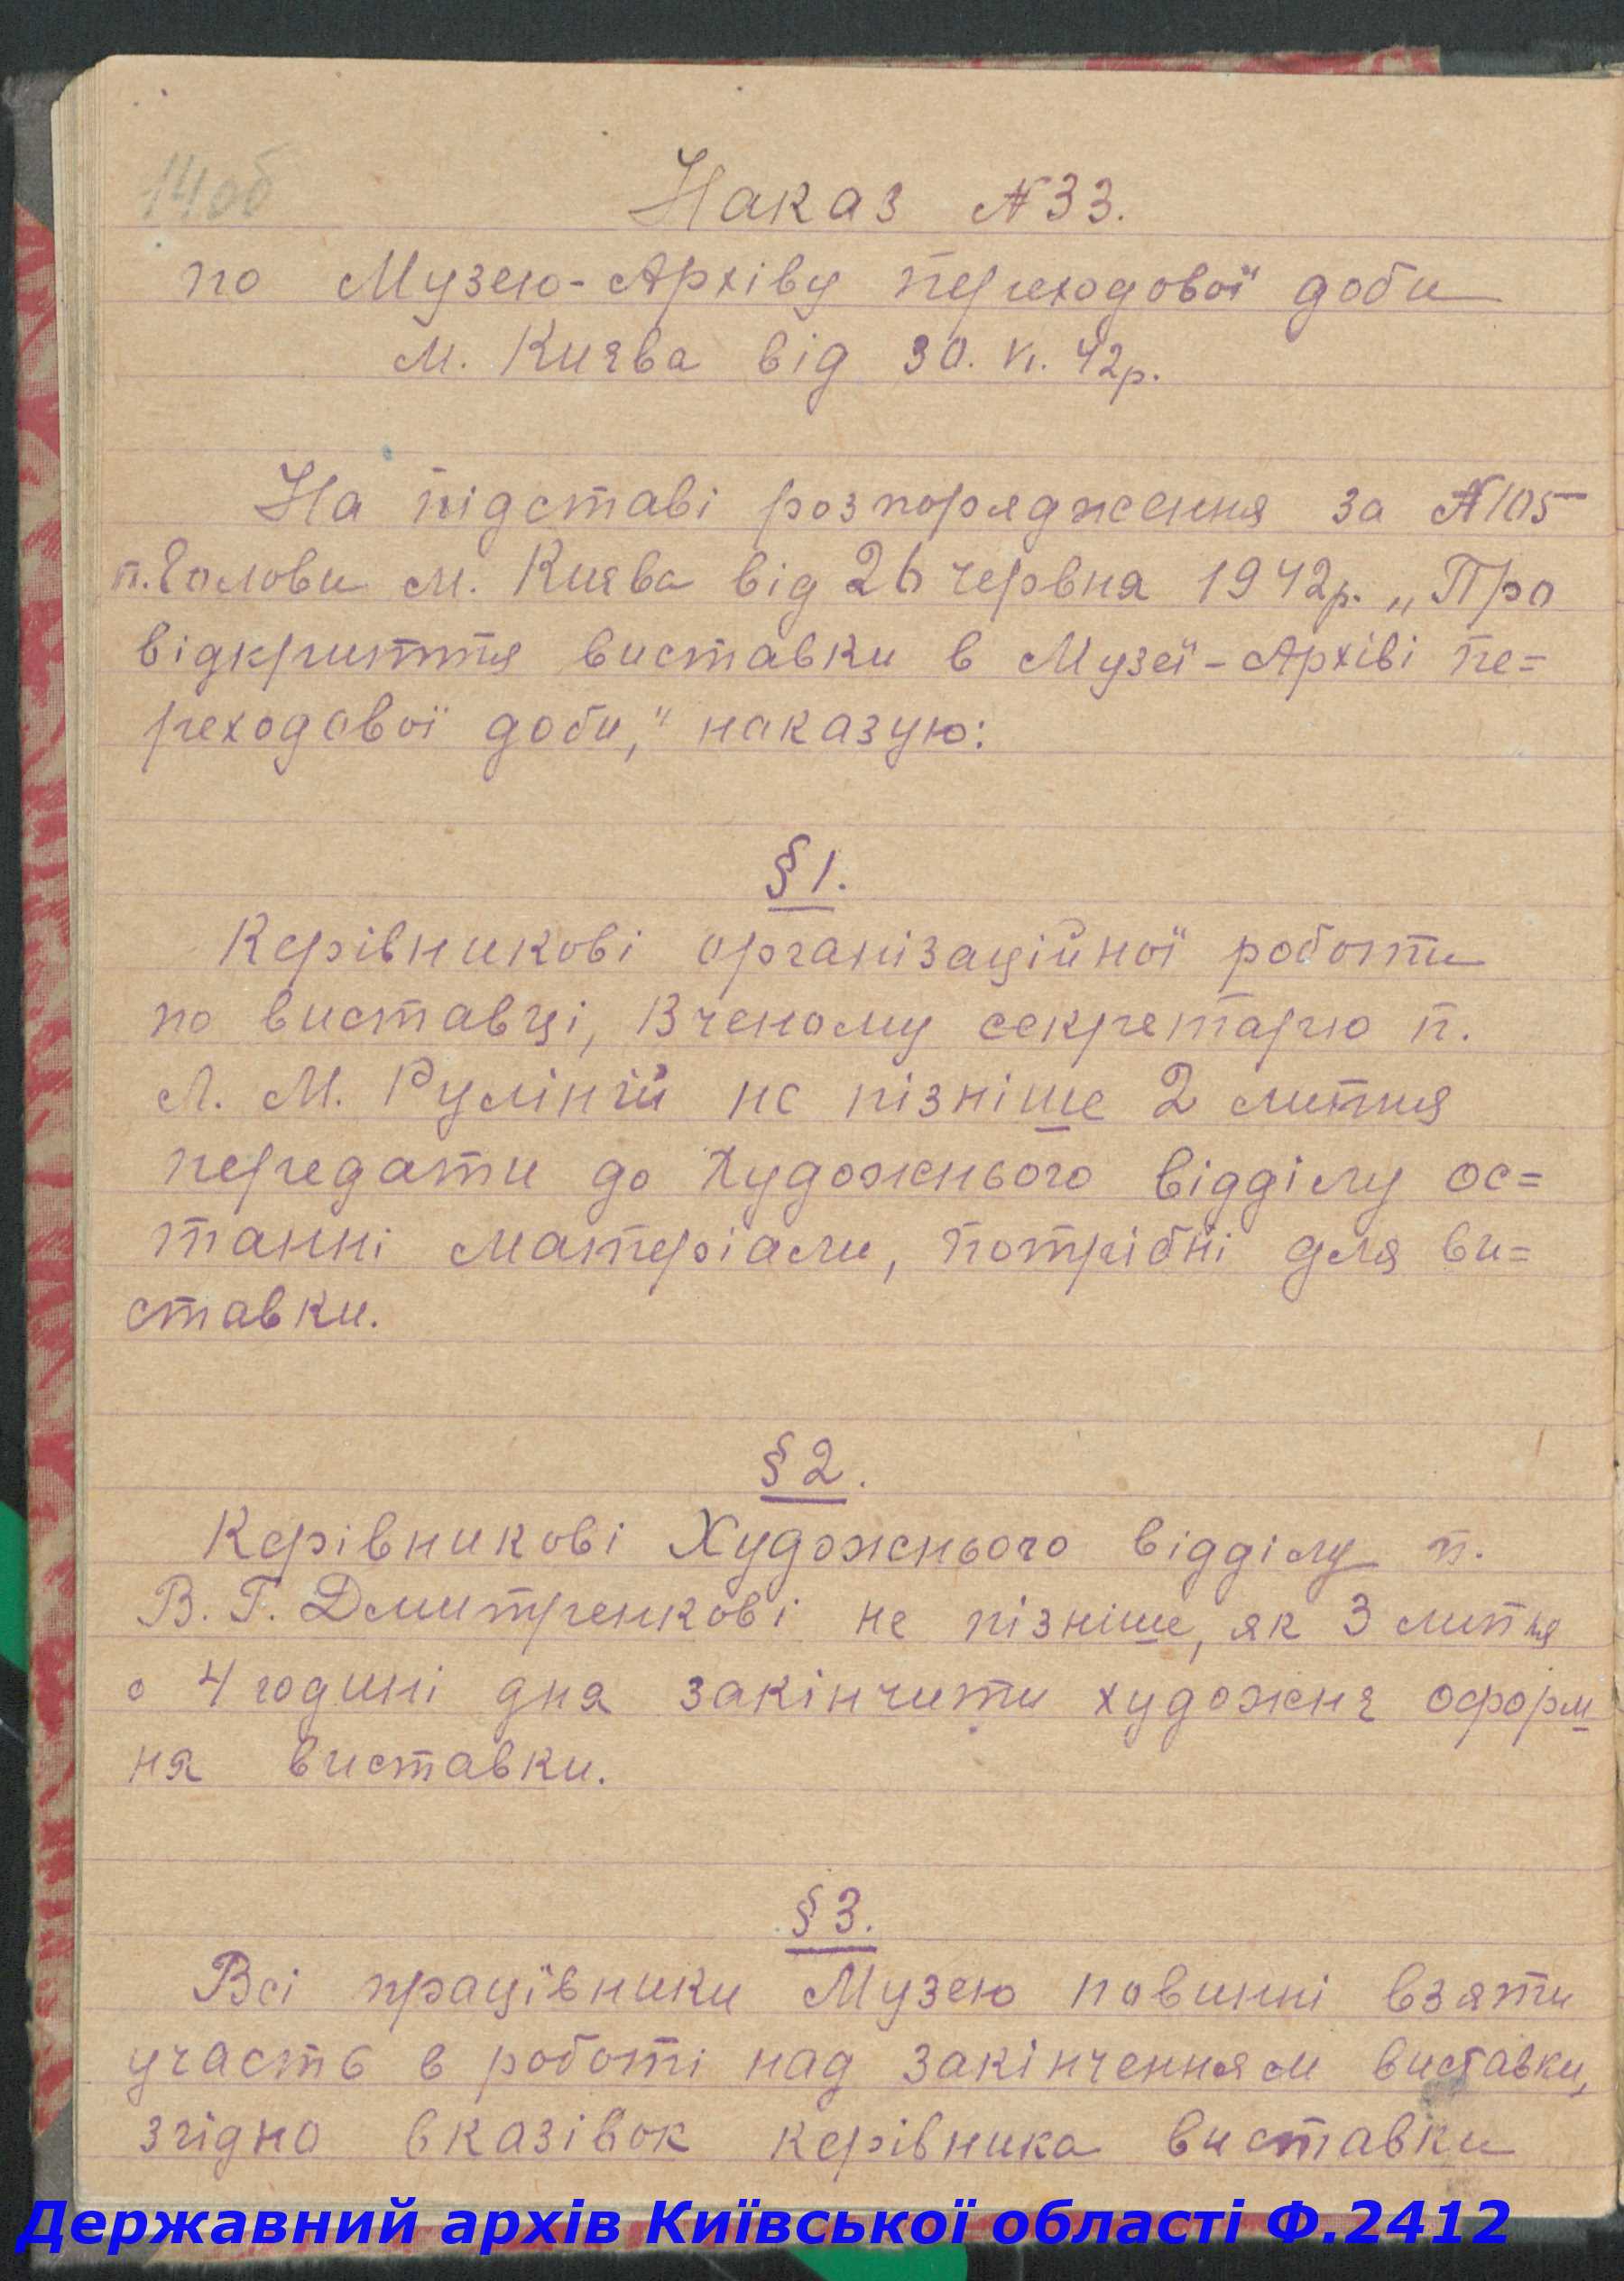 14об
Наказ №33.
по Музею-Архіву переходової доби
м. Києва від 30. VI. 42р.
На підставі розпорядження за №105
п. Голови м. Києва від 26 червня 1942р. „Про
відкриття виставки в Музеї-Архіві пе=
реходової доби," наказую:
§ 1.
Керівникові організаційної роботи
по виставці, Вченому секретарю п.
Л. М. Руліній не пізніше 2 липня
передати до Художнього відділу ос=
танні матеріали, потрібні для ви=
ставки.
§ 2.
Керівникові Художнього відділу п.
В. Г. Дмитренкові не пізніше, як 3 липня
о 4 годині дня закінчити художнє оформ
ня виставки.
§ 3.
Всі працівники Музею повинні взяти
участь в роботі над закінченням виставки,
згідно вказівок керівника виставки
Державний архів Київської області Ф.2412